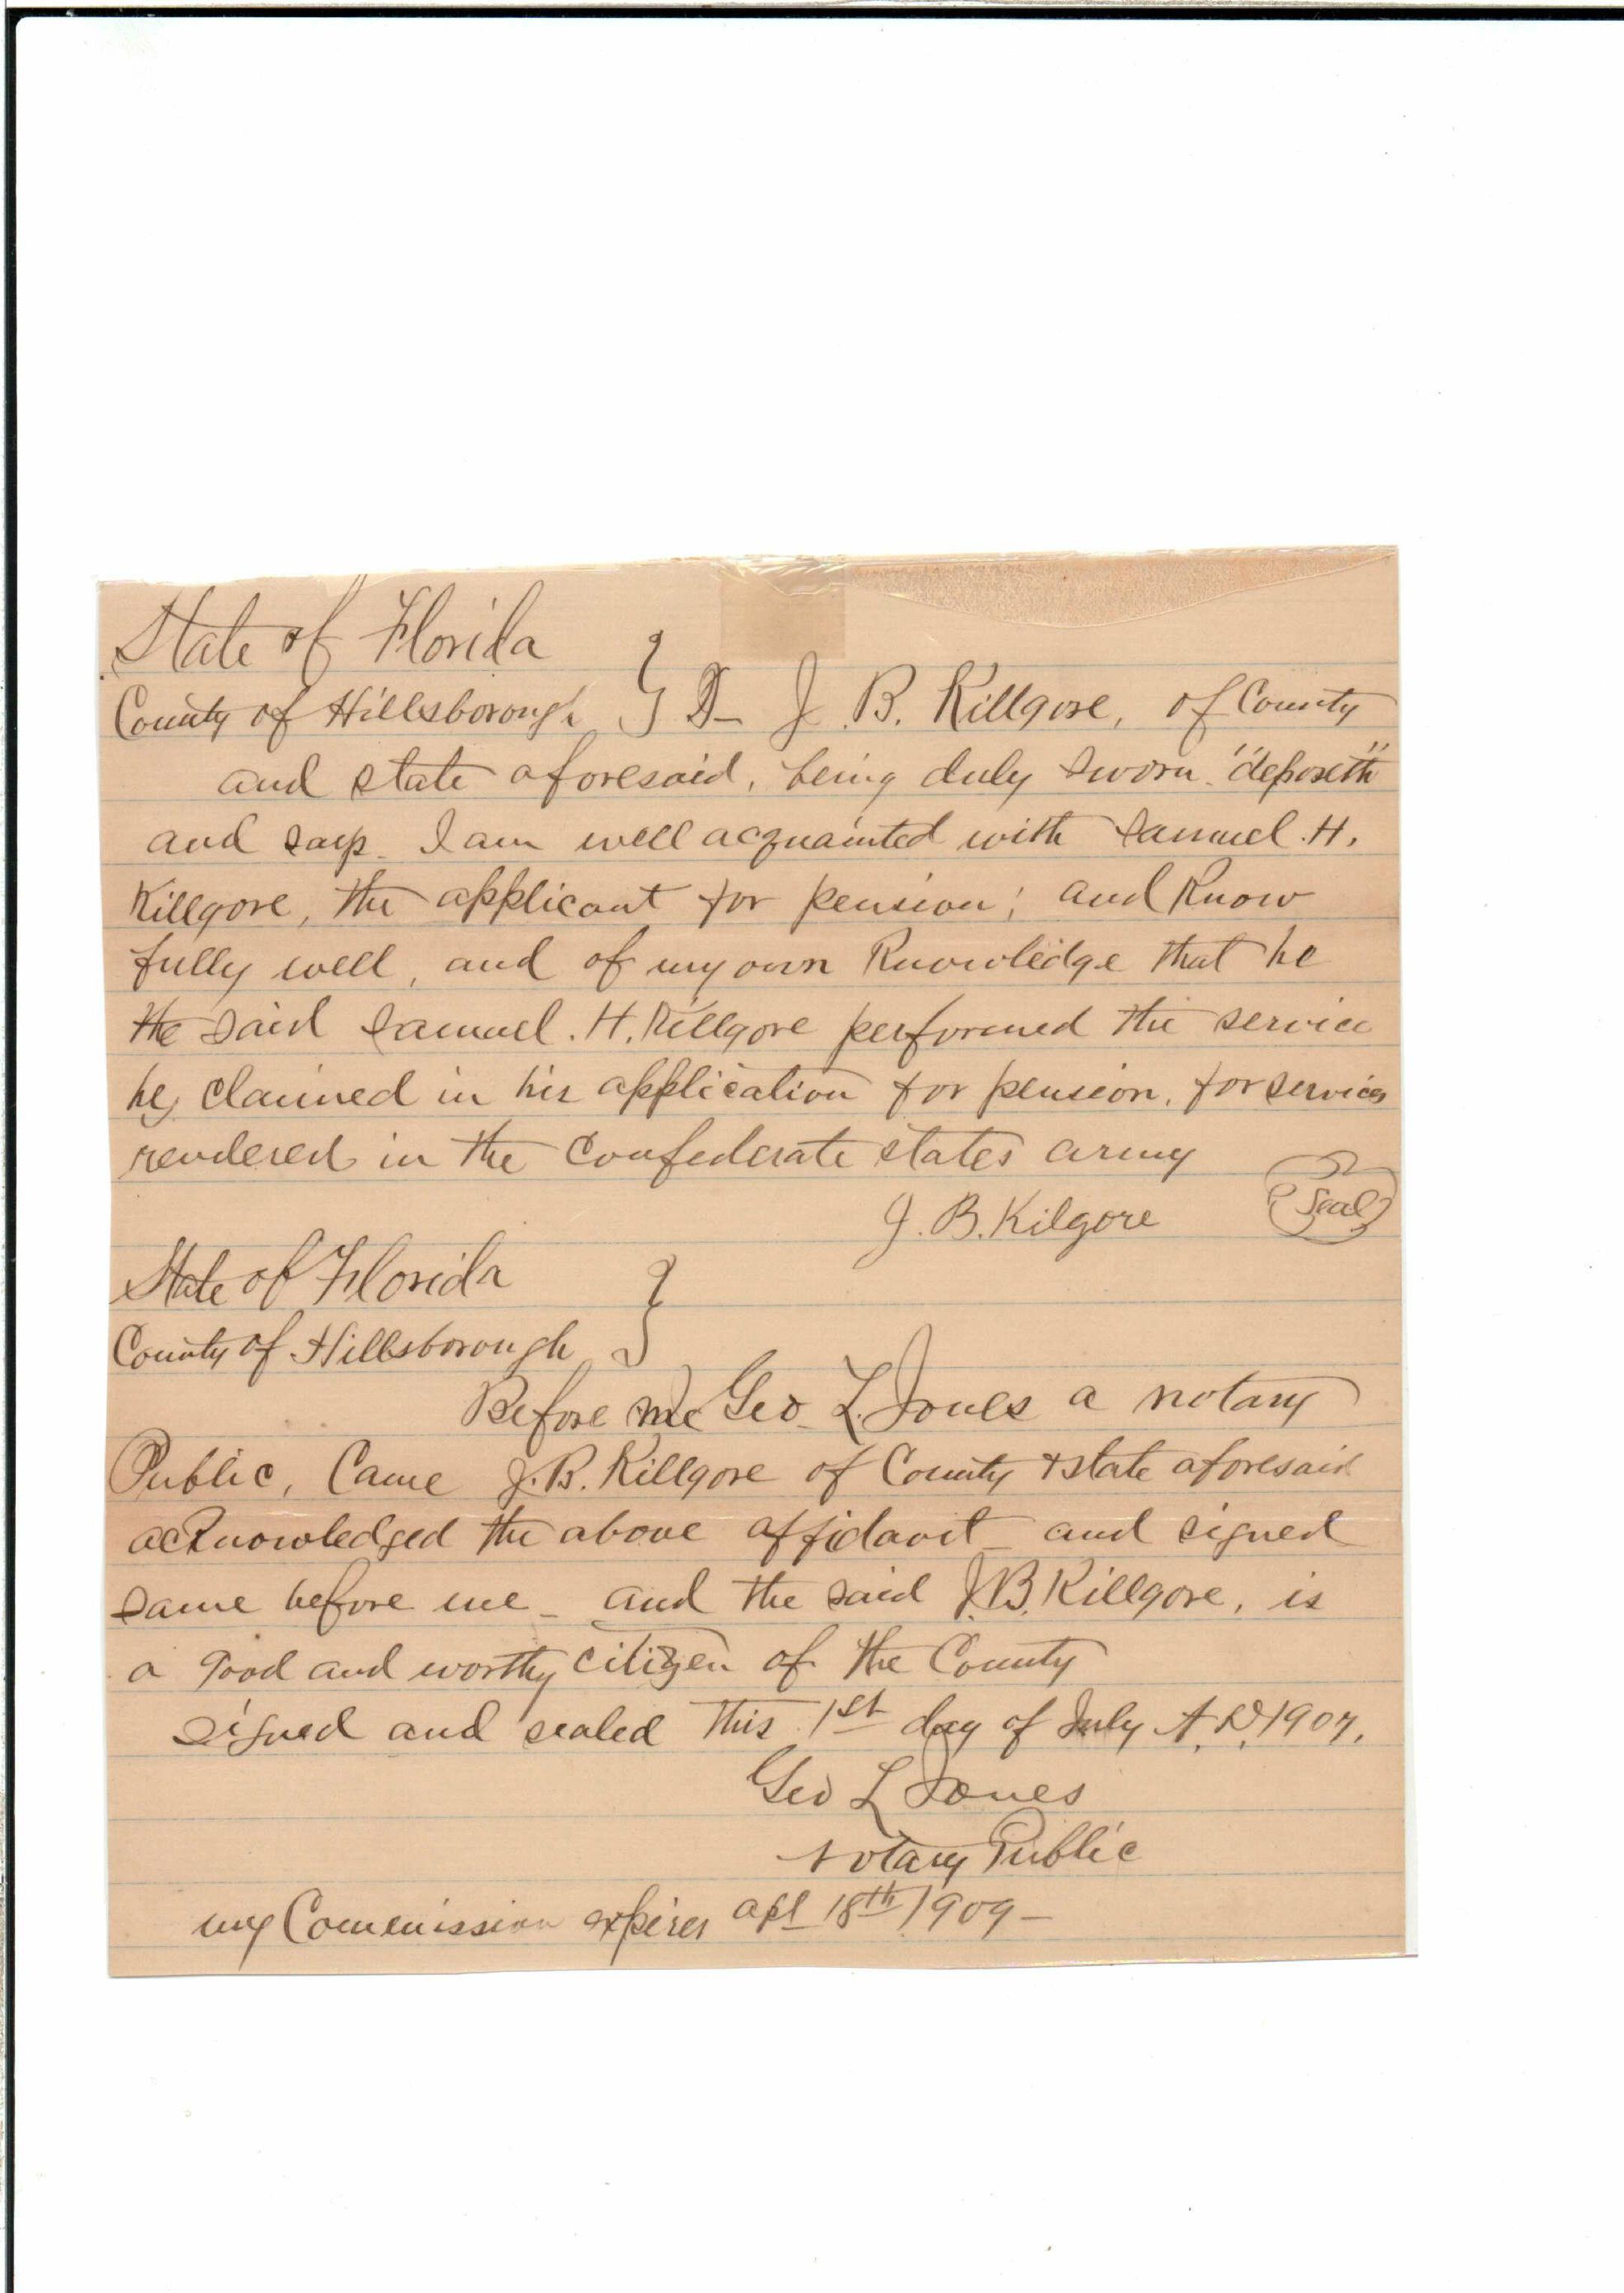 State of Florida
County of Hillsborough } J. B. Killgore, of County
and state aforesaid, being duly sworn "deposeth"
and says. I am well acquainted with Samuel. H.
Killgore, the applicant for pension; and Know
fully well, and of my own Knowledge that he
the said Samuel. H. Killgore performed the service
he claimed in his application for pension, for services
rendered in the Confederate states army
J. B. Kilgore (Seal)
State of Florida }
County of Hillsborough
Before me Geo. L. Jones a notary
Public, Came J. B. Killgore of County + state aforesaid
acknowledged the above affidavit and signed
same before me - and the said J. B. Killgore, is
a good and worthy citizen of the County
signed and sealed this 1st day of July A.D. 1907.
Geo L Jones
Notary Public
my Commission expires apl 18th 1909 -